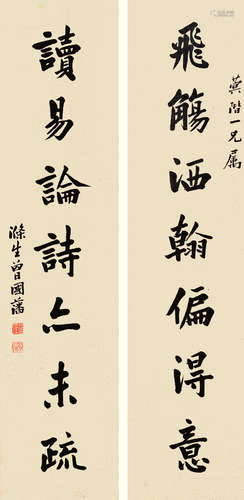 蓂階一兄属
飛觴洒翰偏得意
讀易論詩亦未疏
滌生曾國藩